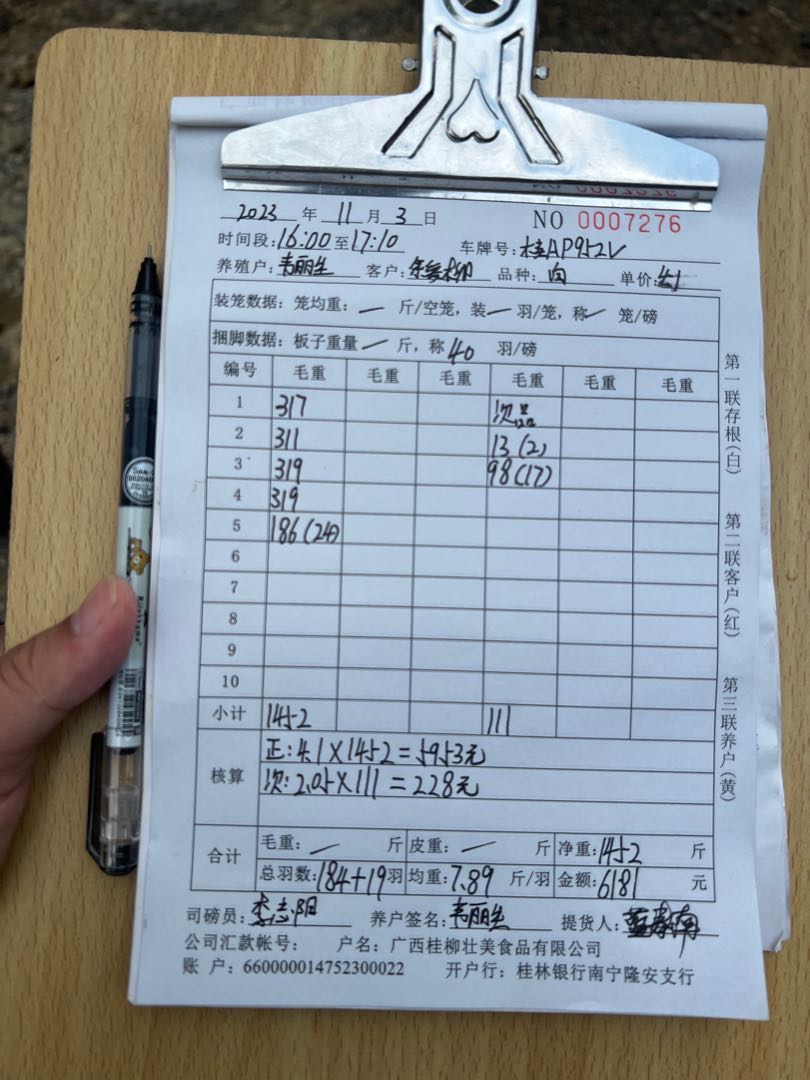 2023 年 11 月 3 日 NO 0007276
时间段:16:00至17:10 车牌号:桂AP952V
养殖户:韦丽生 客户: 品种:白 单价:4.1
装笼数据:笼均重:— 斤/空笼,装— 羽/笼,称— 笼/磅
捆脚数据:板子重量— 斤,称40 羽/磅
编号 毛重 毛重 毛重 毛重 毛重 毛重
1 317 次品
2 311 13(2)
3 319 98(17)
4 319
5 186(24)
6
7
8
9
10
小计 1452 111
核算 正:4.1×1452=5953元
次:2.05×111=228元
合计 毛重:— 斤 皮重:— 斤 净重:1452 斤
总羽数:184+19羽 均重:7.89 斤/羽 金额:6181 元
司磅员:李志阳 养户签名:韦丽生 提货人:
公司汇款帐号: 户名:广西桂柳壮美食品有限公司
账 户:660000014752300022 开户行:桂林银行南宁隆安支行
第一联存根(白)
第二联客户(红)
第三联养户(黄)